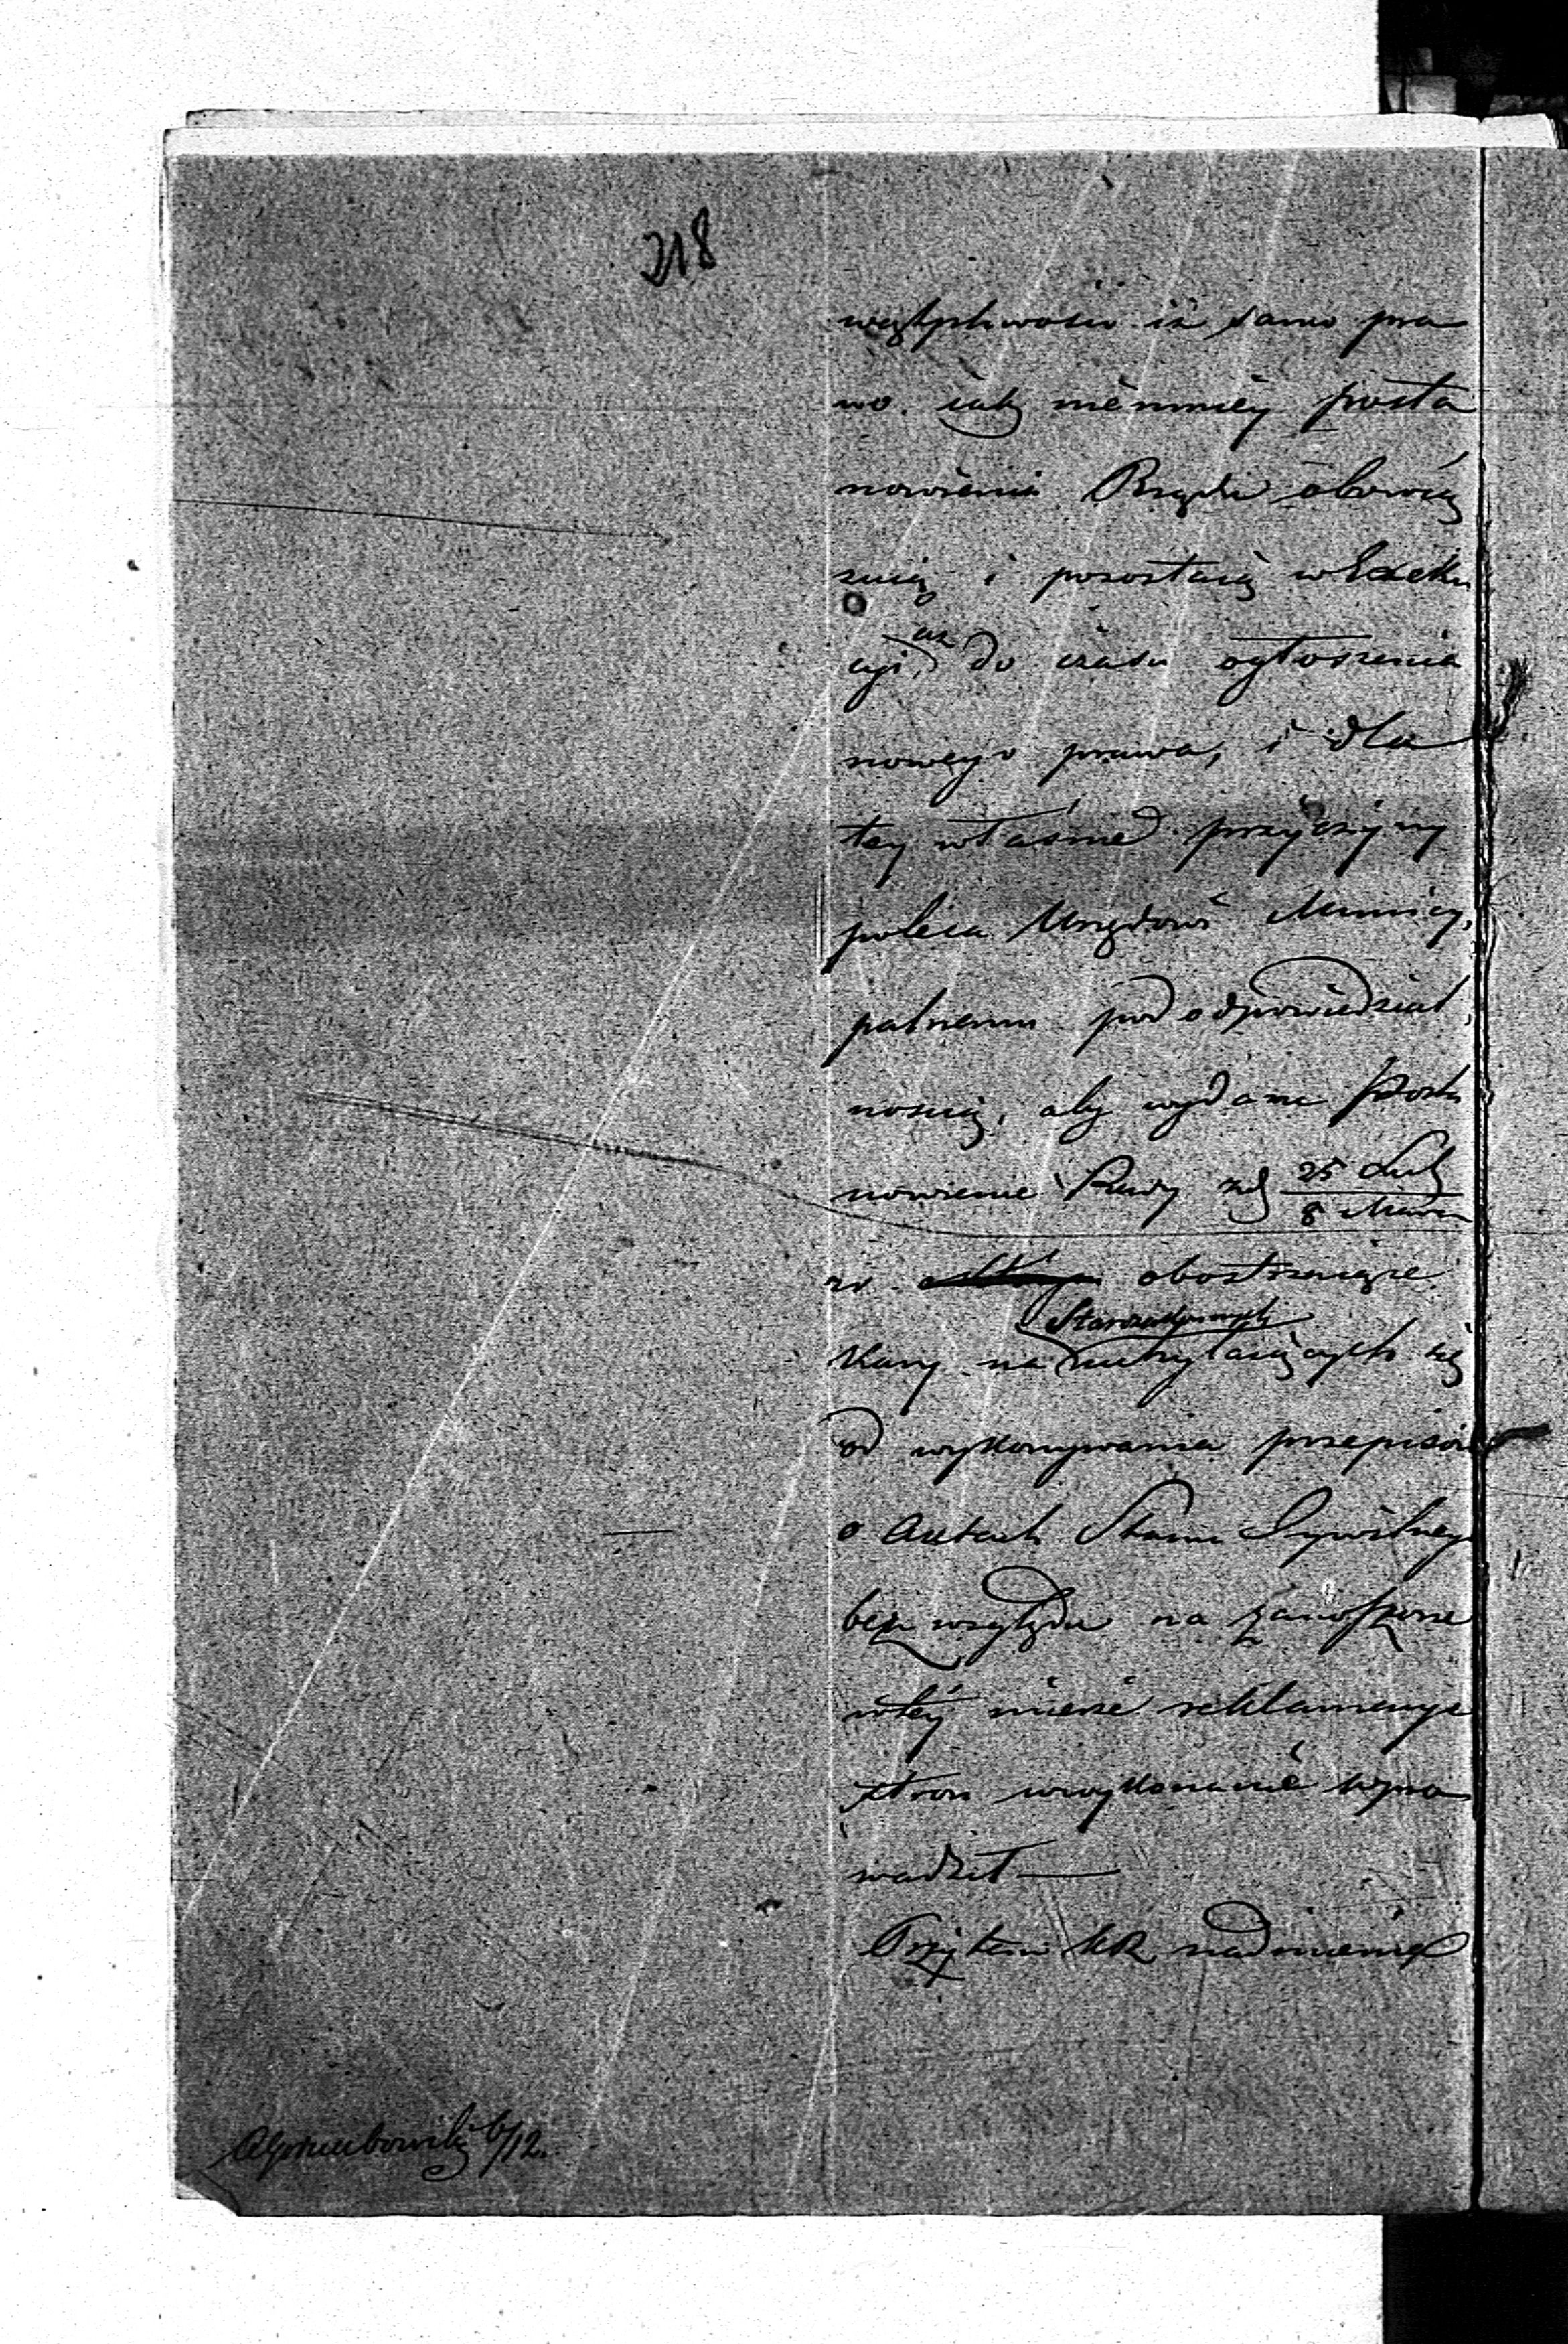 218
wątpliwości iż samo pra
wo. iak niemniey posta
nowienia Rządu obowią
zuią i pozostaią w Exeku
cyi, aż do czasu ogłoszenia
nowego prawa, i dla
tey właśnie przyczyny
poleca Urzędowi Municy,
palnemu pod odpowiedzial,
nością, aby wydane Posta
nowienie Rady z d 25 Lut / 8 Marca
rb. obostrzaiące
Kary na Starozakonnych uchylaiących się
od wykonywania przepisów
o Aktach Stanu Cywilnego
bez względu na zanoszone
w tey mierze reklamacye
stron w wykonanie wpro
wadził —
Przytem KR nadmienia
6/12.